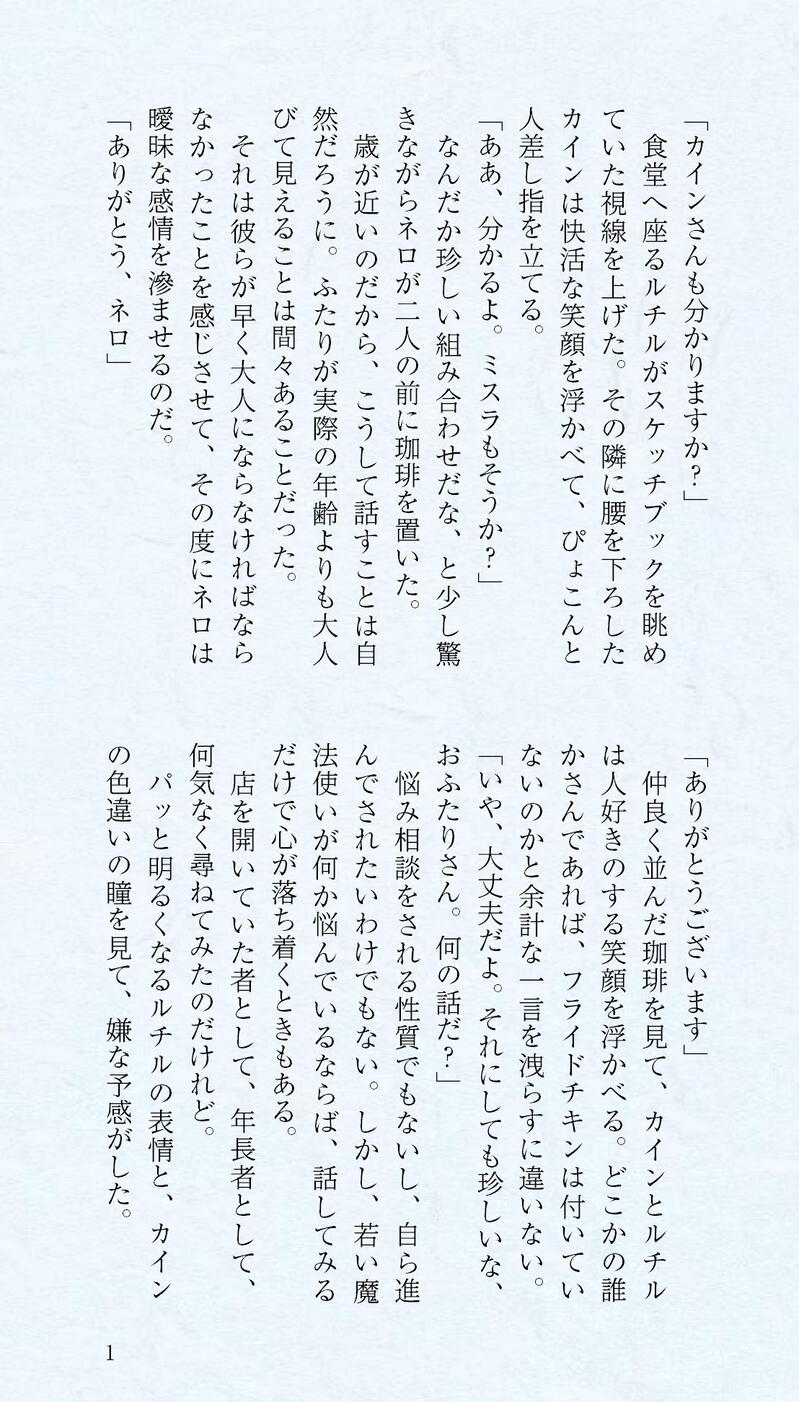 「カインさんも分かりますか？」
　食堂へ座るルチルがスケッチブックを眺め
ていた視線を上げた。その隣に腰を下ろした
カインは快活な笑顔を浮かべて、ぴょこんと
人差し指を立てる。
「ああ、分かるよ。ミスラもそうか？」
　なんだか珍しい組み合わせだな、と少し驚
きながらネロが二人の前に珈琲を置いた。
　歳が近いのだから、こうして話すことは自
然だろうに。ふたりが実際の年齢よりも大人
びて見えることは間々あることだった。
　それは彼らが早く大人にならなければなら
なかったことを感じさせて、その度にネロは
曖昧な感情を滲ませるのだ。
「ありがとう、ネロ」
「ありがとうございます」
　仲良く並んだ珈琲を見て、カインとルチル
は人好きのする笑顔を浮かべる。どこかの誰
かさんであれば、フライドチキンは付いてい
ないのかと余計な一言を洩らすに違いない。
「いや、大丈夫だよ。それにしても珍しいな、
おふたりさん。何の話だ？」
　悩み相談をされる性質でもないし、自ら進
んでされたいわけでもない。しかし、若い魔
法使いが何か悩んでいるならば、話してみる
だけで心が落ち着くときもある。
　店を開いていた者として、年長者として、
何気なく尋ねてみたのだけれど。
　パッと明るくなるルチルの表情と、カイン
の色違いの瞳を見て、嫌な予感がした。
1